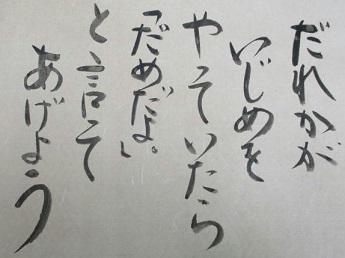 だれかが
いじめを
やっていたら
「だめだよ。」
と言って
あげよう